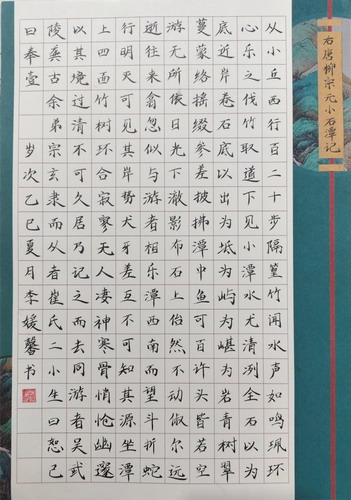 右唐柳宗元小石潭记
从小丘西行百二十步隔篁竹闻水声如鸣珮环
心乐之伐竹取道下见小潭水尤清冽全石以为
底近岸卷石底以出为坻为屿为嵁为岩青树翠
蔓蒙络摇缀参差披拂潭中鱼可百许头皆若空
游无所依日光下澈影布石上佁然不动俶尔远
逝往来翕忽似与游者相乐潭西南而望斗折蛇
行明灭可见其岸势犬牙差互不可知其源坐潭
上四面竹树环合寂寥无人凄神寒骨悄怆幽邃
以其境过清不可久居乃记之而去同游者吴武
陵龚古余弟宗玄隶而从者崔氏二小生曰恕己
曰奉壹 岁次乙巳夏月李媛馨书